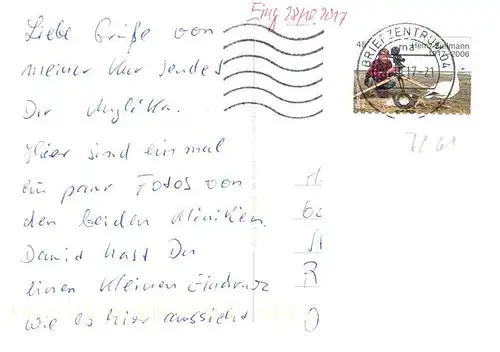 Eing 28/10.2017
Liebe Grüße von
meiner Kur sendet
Dir Angelika.
Hier sind einmal
ein paar Fotos von
den beiden Kliniken.
Damit hast Du
einen kleinen Eindruck
wie es hier aussieht
BRIEFZENTRUM 04
17-21
45
Heinz Sielmann
1917-2006